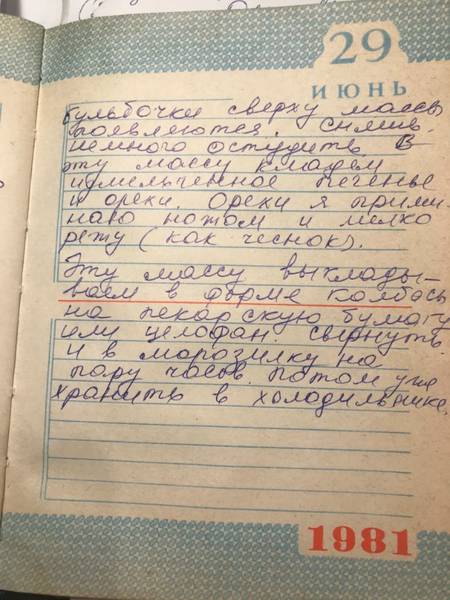 29
ИЮНЬ
бульбочки сверху массы
появляются. Снять.
немного остудить В
эту массу кладем
измельченное печенье
и орехи. Орехи я прими-
наю ножом и мелко
режу (как чеснок).
Эту массу выклады-
ваем в форме колбасы
на пекарскую бумагу
или целофан. свернуть
и в морозилку на
пару часов. потом уже
хранить в холодильнике.
1981